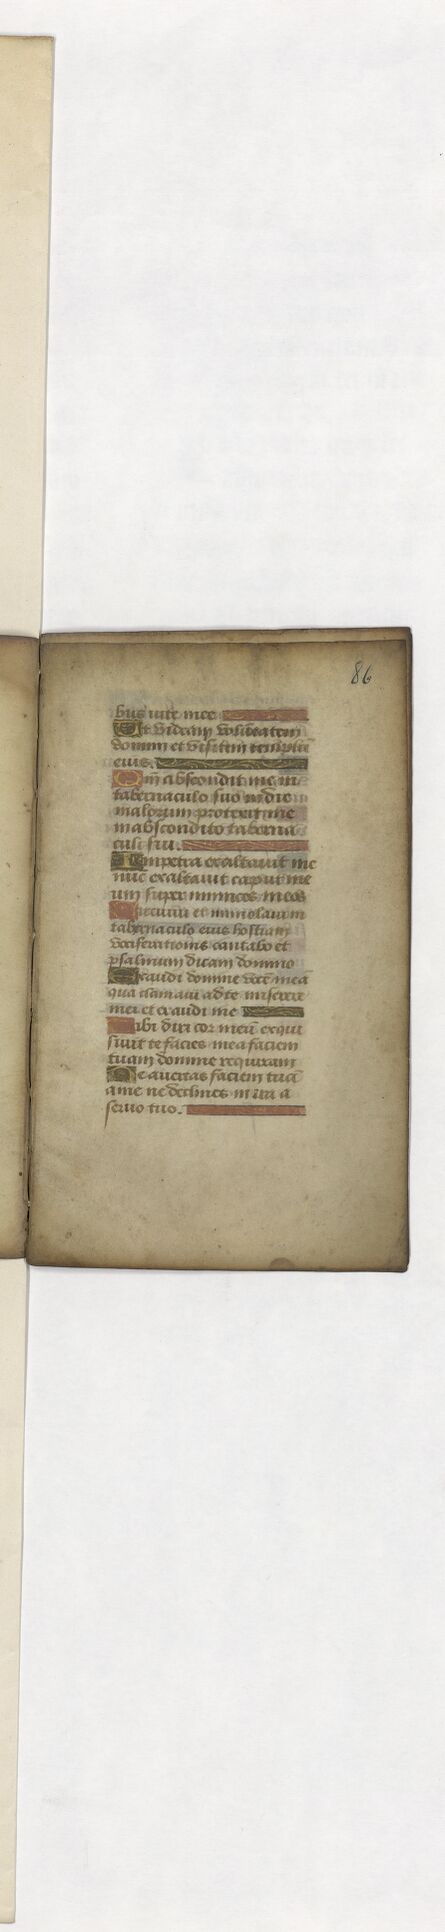 86
bus uite mee
Et videam volūtatem
domini et visitem templū
eius.
Qm̄ abscondit me in
tabernaculo suo in die
malorum protexit me
in abscondito taberna
culi sui.
In petra exaltauit me
nūc exaltauit caput me
um super inimicos meos
Circuiui et immolaui in
tabernaculo eius hostiam
vociferationis cantabo et
psalmum dicam domino
Exaudi domine vocē meā
qua clamaui ad te miserere
mei et exaudi me
Tibi dixi cor meū exqui
siuit te facies mea faciem
tuam domine requiram
Ne auertas faciem tuā
a me ne declines in ira a
seruo tuo.